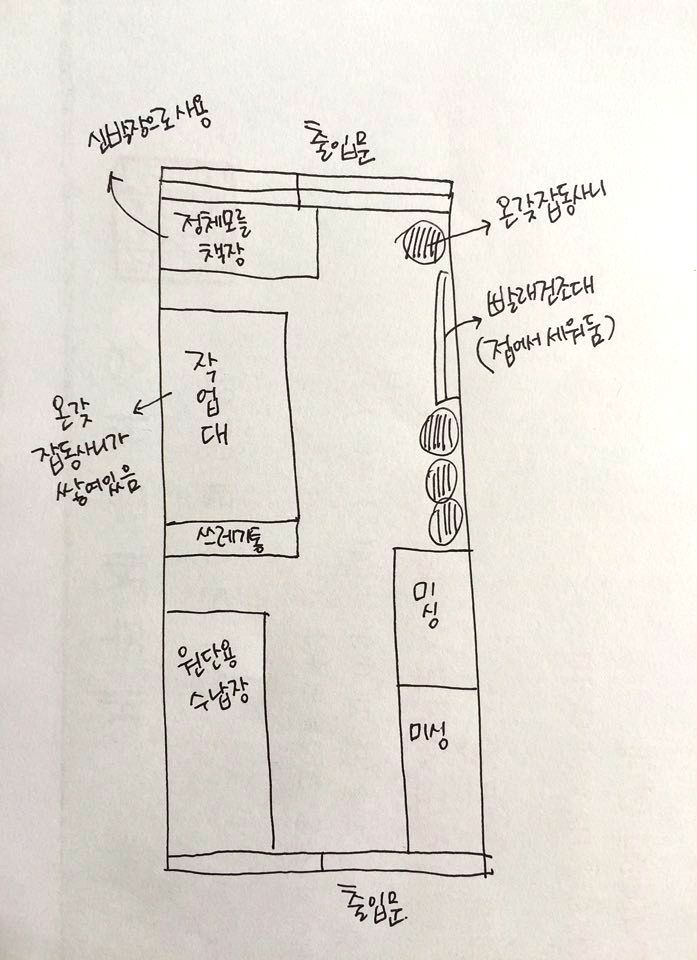 신발장으로 사용
출입문
정체모를
책장
온갖잡동사니
빨래건조대
(접에서 세워둠)
작
업
대
온갖
잡동사니가
쌓여있음
쓰레기통
미
싱
원단용
수납장
미싱
출입문